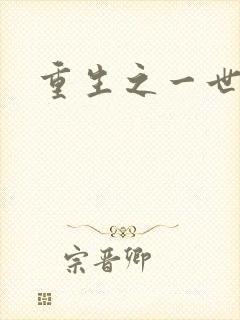 重生之一世
宗晋卿